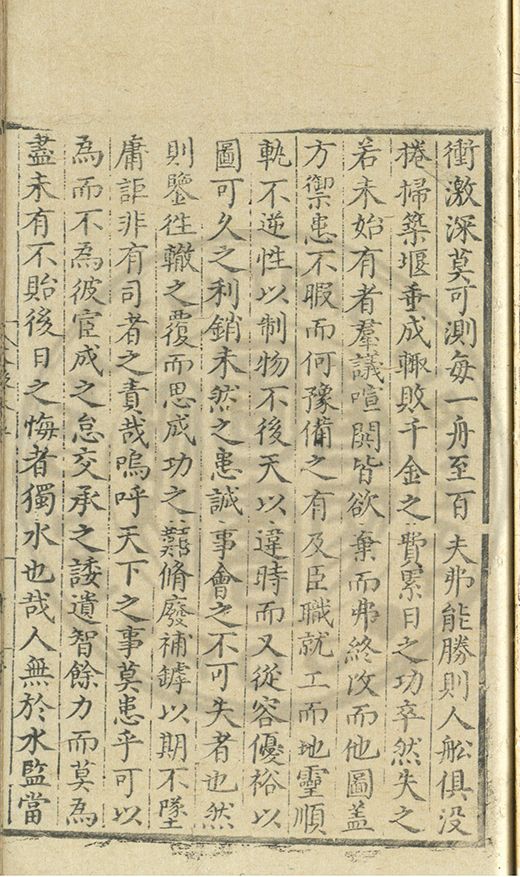 衝激深莫可測每一舟至百夫弗能勝則人舩俱没
捲掃築堰垂成輙敗千金之費累日之功卒然失之
若未始有者羣議喧閧皆欲棄而弗終改而他圖盖
方禦患不暇而何豫備之有及臣職就工而地靈順
軌不逆性以制物不後天以違時而又從容優裕以
圖可久之利銷未然之患誠事會之不可失者也然
則鑒徃轍之覆而思成功之難脩廢補罅以期不墜
庸詎非有司者之責哉嗚呼天下之事莫患乎可以
為而不為彼宦成之怠交承之諉遺智餘力而莫為
盡未有不貽後日之悔者獨水也哉人無於水監當